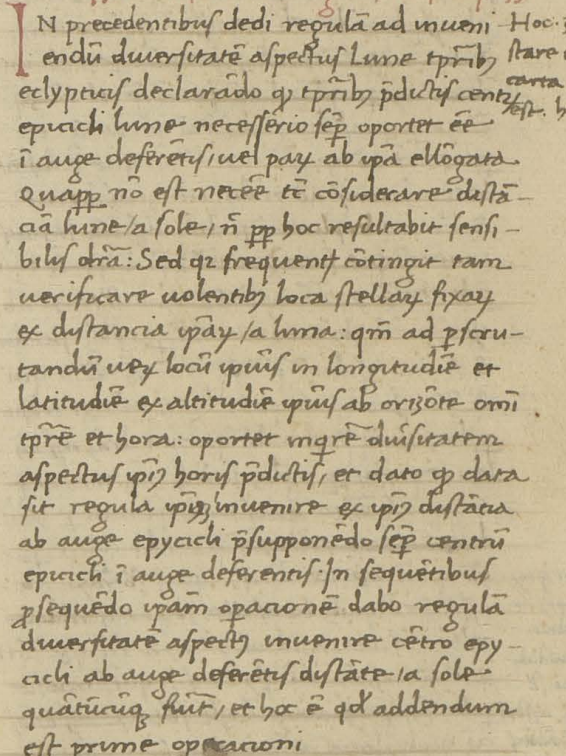 IN precedentibus dedi regulā ad inueni
endū diuersitatē aspectus lune tpr̄ibꝫ
eclypticis declarādo qꝫ tpr̄ibꝫ p̄dictis centꝝ
epicicli lune necessērio sēp oportet eē̄
ī auge deferētis, uel paꝝ ab ip̄a ellōgata
Quapp̱ nō est neceē̄ tc̄ cōsiderare distā-
ciā lune / a sole / n̄ pp̱ hoc resultabit sensi-
bilis dr̄ā: Sed qꝛ frequenter cōtingit tam
uerificare uolentibꝫ loca stellaꝝ fixaꝝ
ex distancia ip̄aꝝ / a luna: qm̄ ad ꝑscru-
tandū ueꝝ locū ipīus in longitudīe et
latitudīe ex altitudīe ipīus ab orizōte omī
tpr̄ē et hora: oportet inq̄rē diūsitatem
aspectus ip̄iꝰ horis p̄dictis, et dato qꝫ data
sit regula inuenire ex ip̄iꝰ distācia
ab auge epycicli p̄supponēdo sēp centrū
epicicli ī auge deferentis. In sequētibus
ꝓsequēdo ip̄am oꝑacionē dabo regulā
diuersitatē aspectꝰ inuenire cētro epy-
cicli ab auge deferētis distāte / a sole
quātūcūqꝫ fuīt, et hoc ē qđ addendum
est prime operacioni
Hoc
stare
carta
est. h